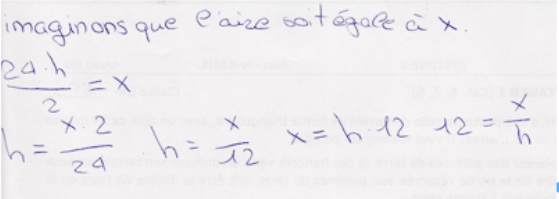 imaginons que l'aire soit égale à x.
24·h/2 = x
h = x·2/24 h = x/12 x = h·12 12 = x/h